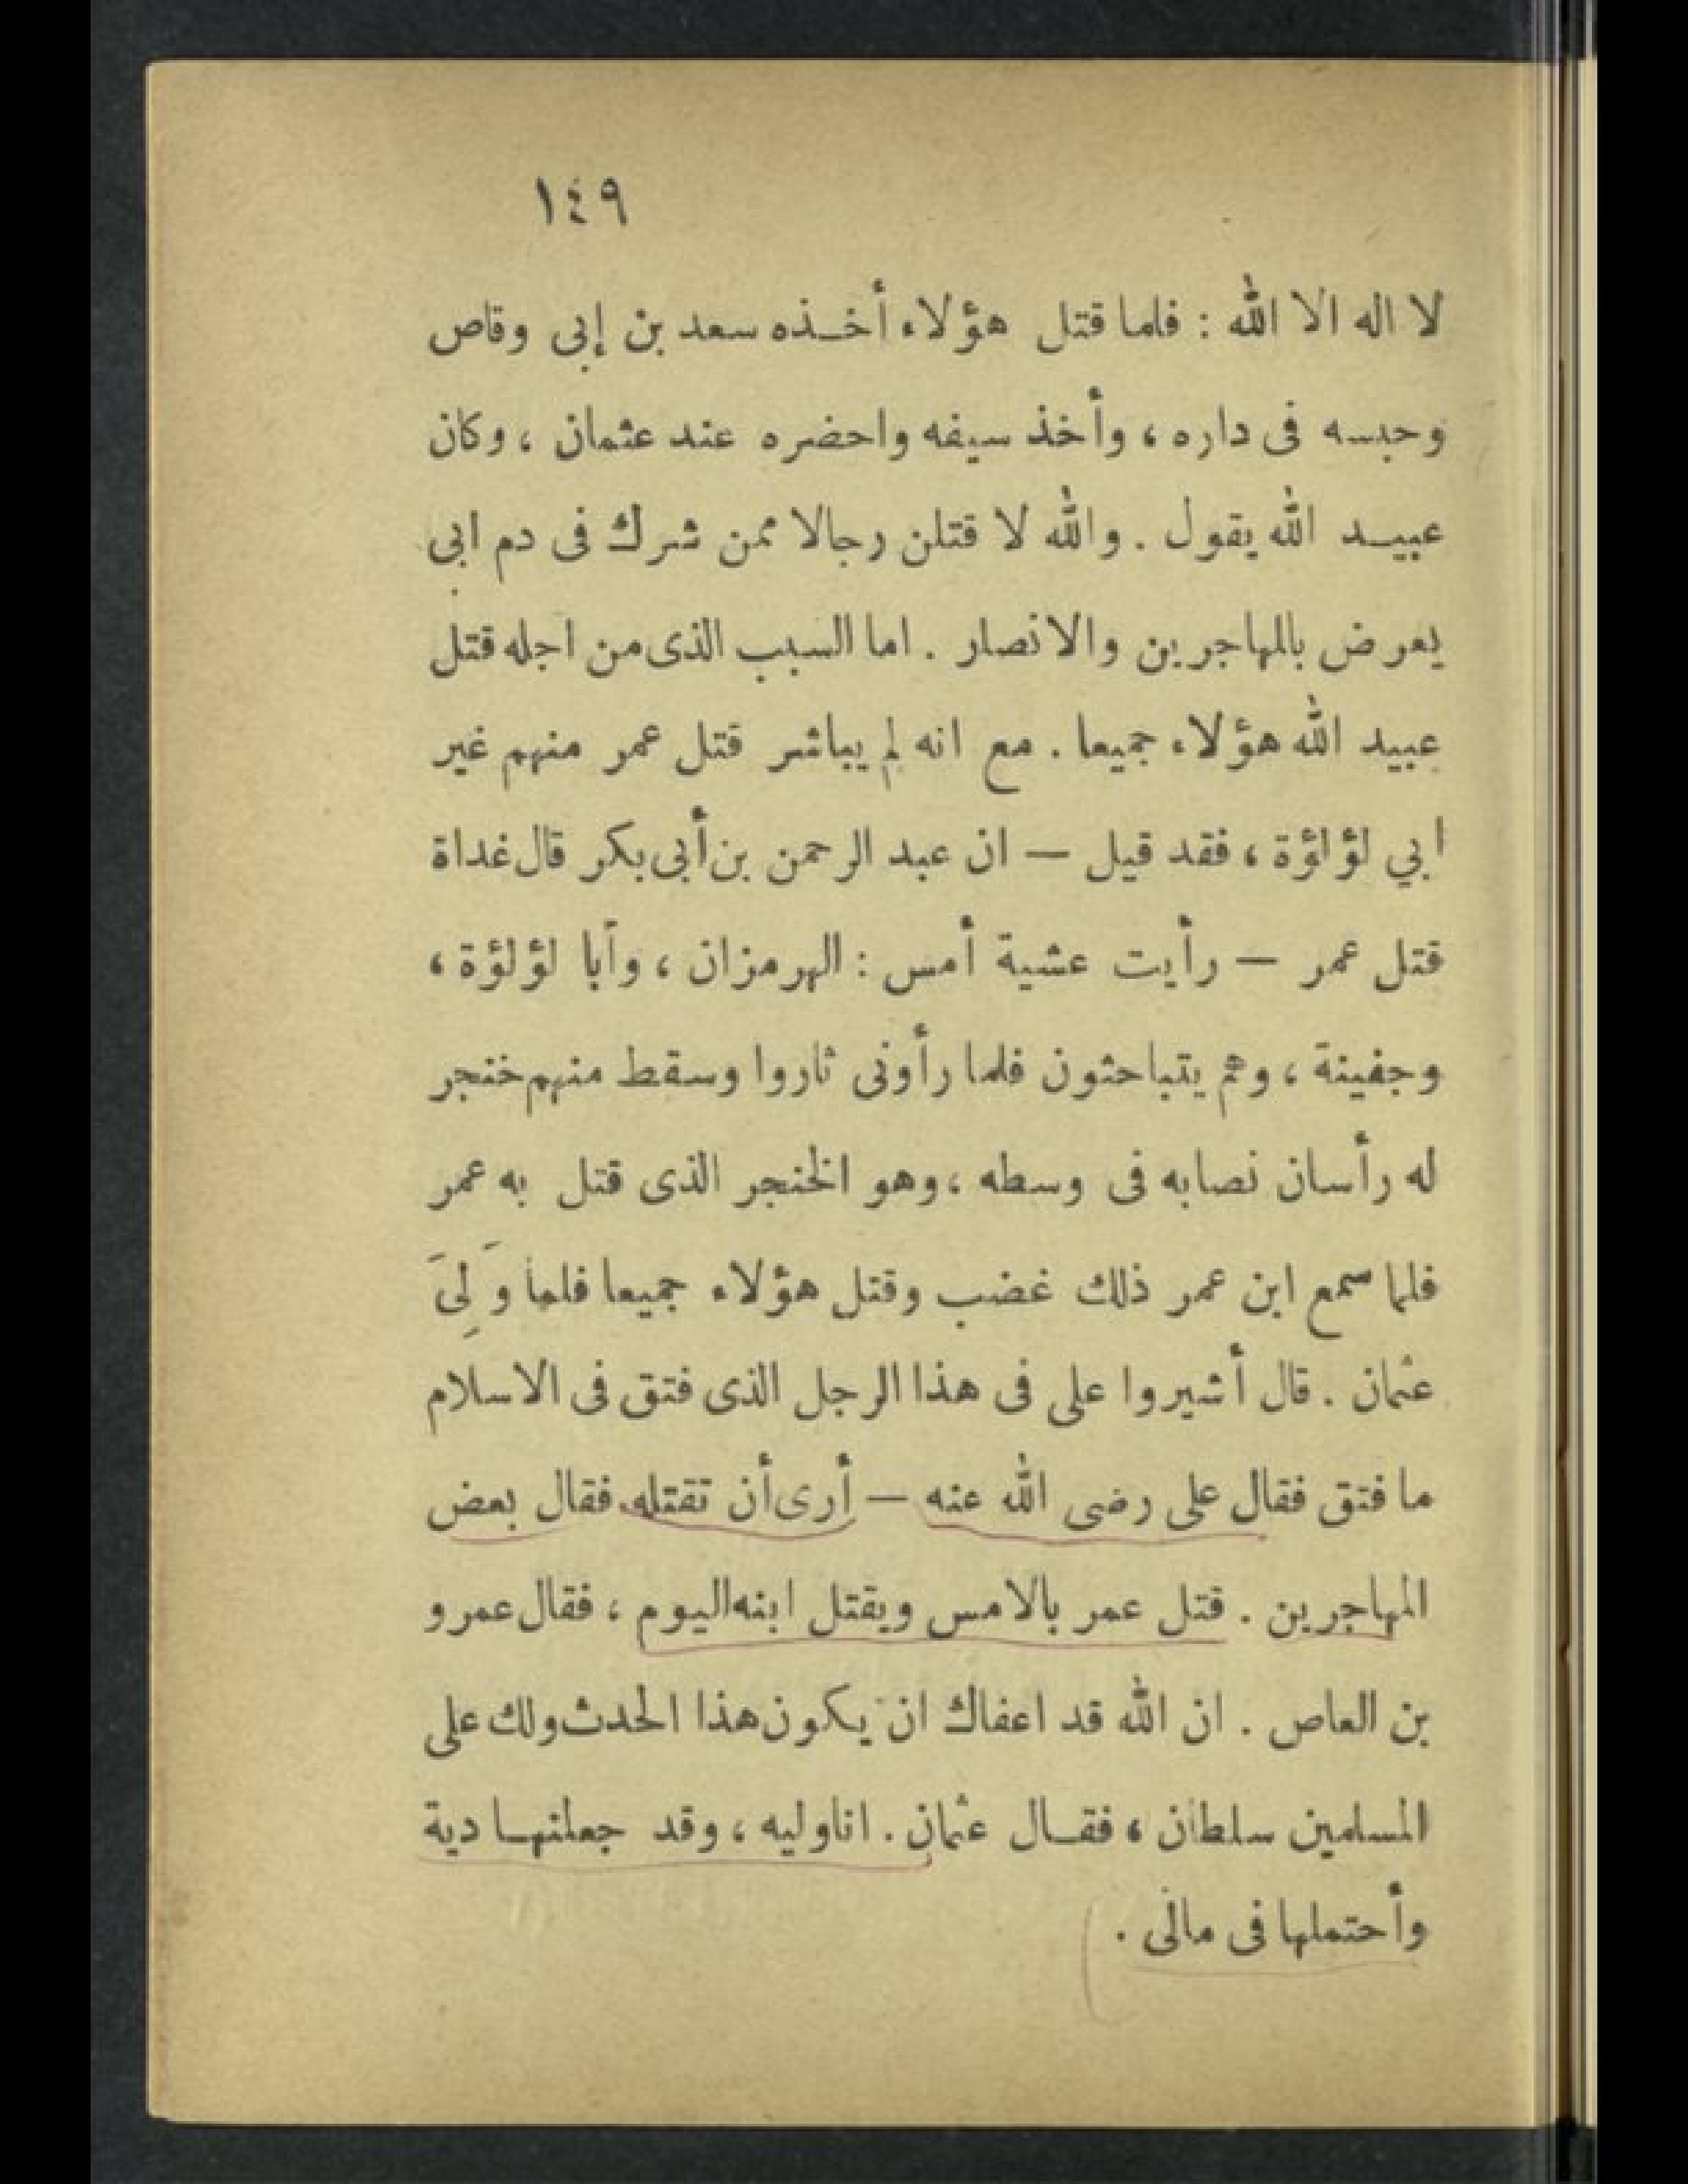 ١٤٩
لا اله الا الله : فلما قتل هؤلاء أخـذه سعد بن إبى وقاص
وحبسه فى داره ، وأخذ سيفه واحضره عند عثمان ، وكان
عبيـد الله يقول . والله لا قتلن رجالا ممن شرك فى دم ابى
يعرض بالمهاجرين والانصار . اما السبب الذى من اجله قتل
عبيد الله هؤلاء جميعا . مع انه لم يباشر قتل عمر منهم غير
ابي لؤلؤة ، فقد قيل — ان عبد الرحمن بن أبى بكر قال غداة
قتل عمر — رأيت عشية أمس : الهرمزان ، وأبا لؤلؤة ،
وجفينة ، وهم يتباحثون فلما رأونى ثاروا وسقط منهم خنجر
له رأسان نصابه فى وسطه ، وهو الخنجر الذى قتل به عمر
فلما سمع ابن عمر ذلك غضب وقتل هؤلاء جميعا فلما وَلِىَ
عثمان . قال أشيروا على فى هذا الرجل الذى فتق فى الاسلام
ما فتق فقال على رضى الله عنه — أرى أن تقتله فقال بعض
المهاجرين . قتل عمر بالامس ويقتل ابنه اليوم ، فقال عمرو
بن العاص . ان الله قد اعفاك ان يكون هذا الحدث ولك على
المسلمين سلطان ، فقـال عثمان . انا وليه ، وقد جعلتهـا دية
وأحتملها فى مالى .